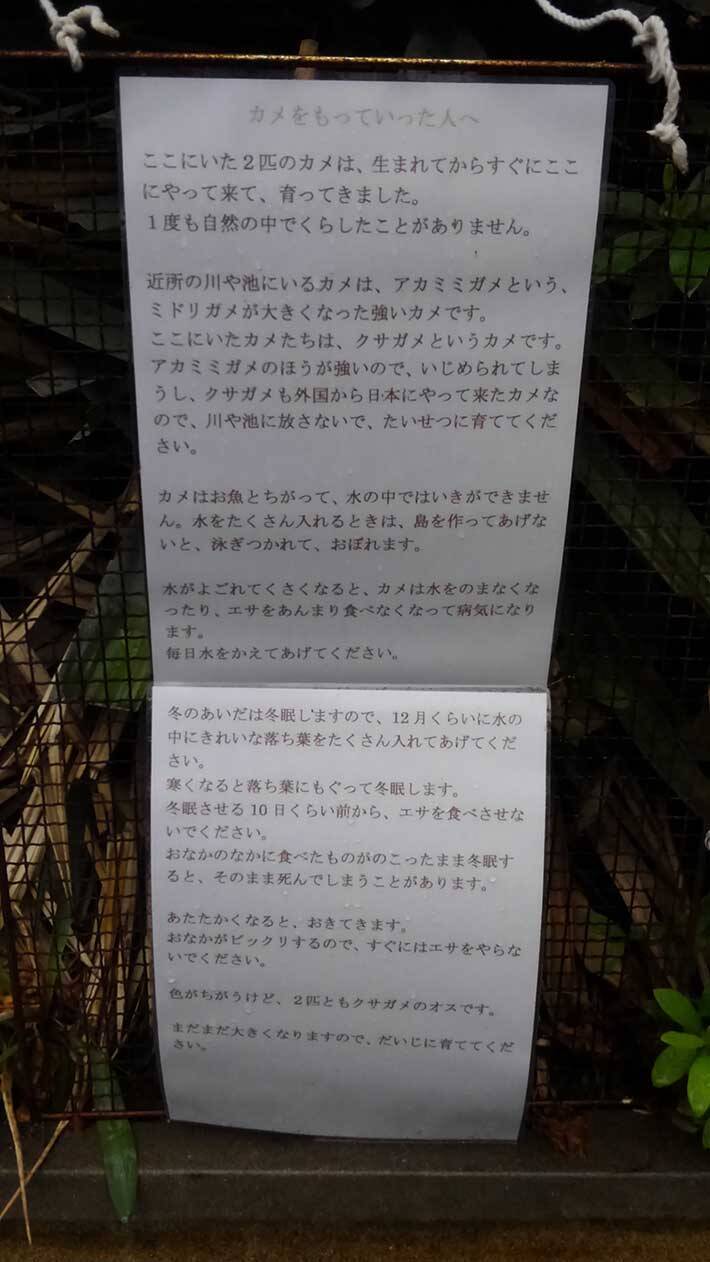 カメをもっていった人へ
ここにいた2匹のカメは、生まれてからすぐにここ
にやって来て、育ってきました。
1度も自然の中でくらしたことがありません。
近所の川や池にいるカメは、アカミミガメという、
ミドリガメが大きくなった強いカメです。
ここにいたカメたちは、クサガメというカメです。
アカミミガメのほうが強いので、いじめられてしま
うし、クサガメも外国から日本にやって来たカメな
ので、川や池に放さないで、たいせつに育ててくだ
さい。
カメはお魚とちがって、水の中ではいきができませ
ん。水をたくさん入れるときは、島を作ってあげな
いと、泳ぎつかれて、おぼれます。
水がよごれてくさくなると、カメは水をのまなくな
ったり、エサをあんまり食べなくなって病気になり
ます。
毎日水をかえてあげてください。
冬のあいだは冬眠しますので、12月くらいに水の
中にきれいな落ち葉をたくさん入れてあげてくだ
さい。
寒くなると落ち葉にもぐって冬眠します。
冬眠させる10日くらい前から、エサを食べさせな
いでください。
おなかのなかに食べたものがのこったまま冬眠す
ると、そのまま死んでしまうことがあります。
あたたかくなると、おきてきます。
おなかがビックリするので、すぐにはエサをやらな
いでください。
色がちがうけど、2匹ともクサガメのオスです。
まだまだ大きくなりますので、だいじに育ててくだ
さい。